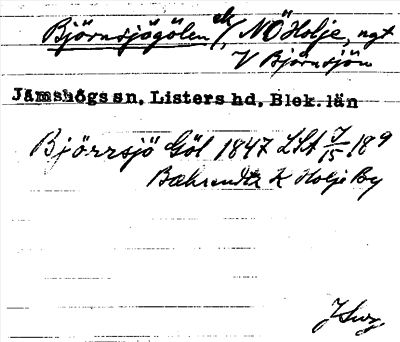 Björnsjögölen ek/, NÖ Holje, ngt
V Björnsjön
Jämshögs sn, Listers hd, Blek. län
Björrsjö Göl 1847 LSA J/15 189
Bæhrendtz K Holje By